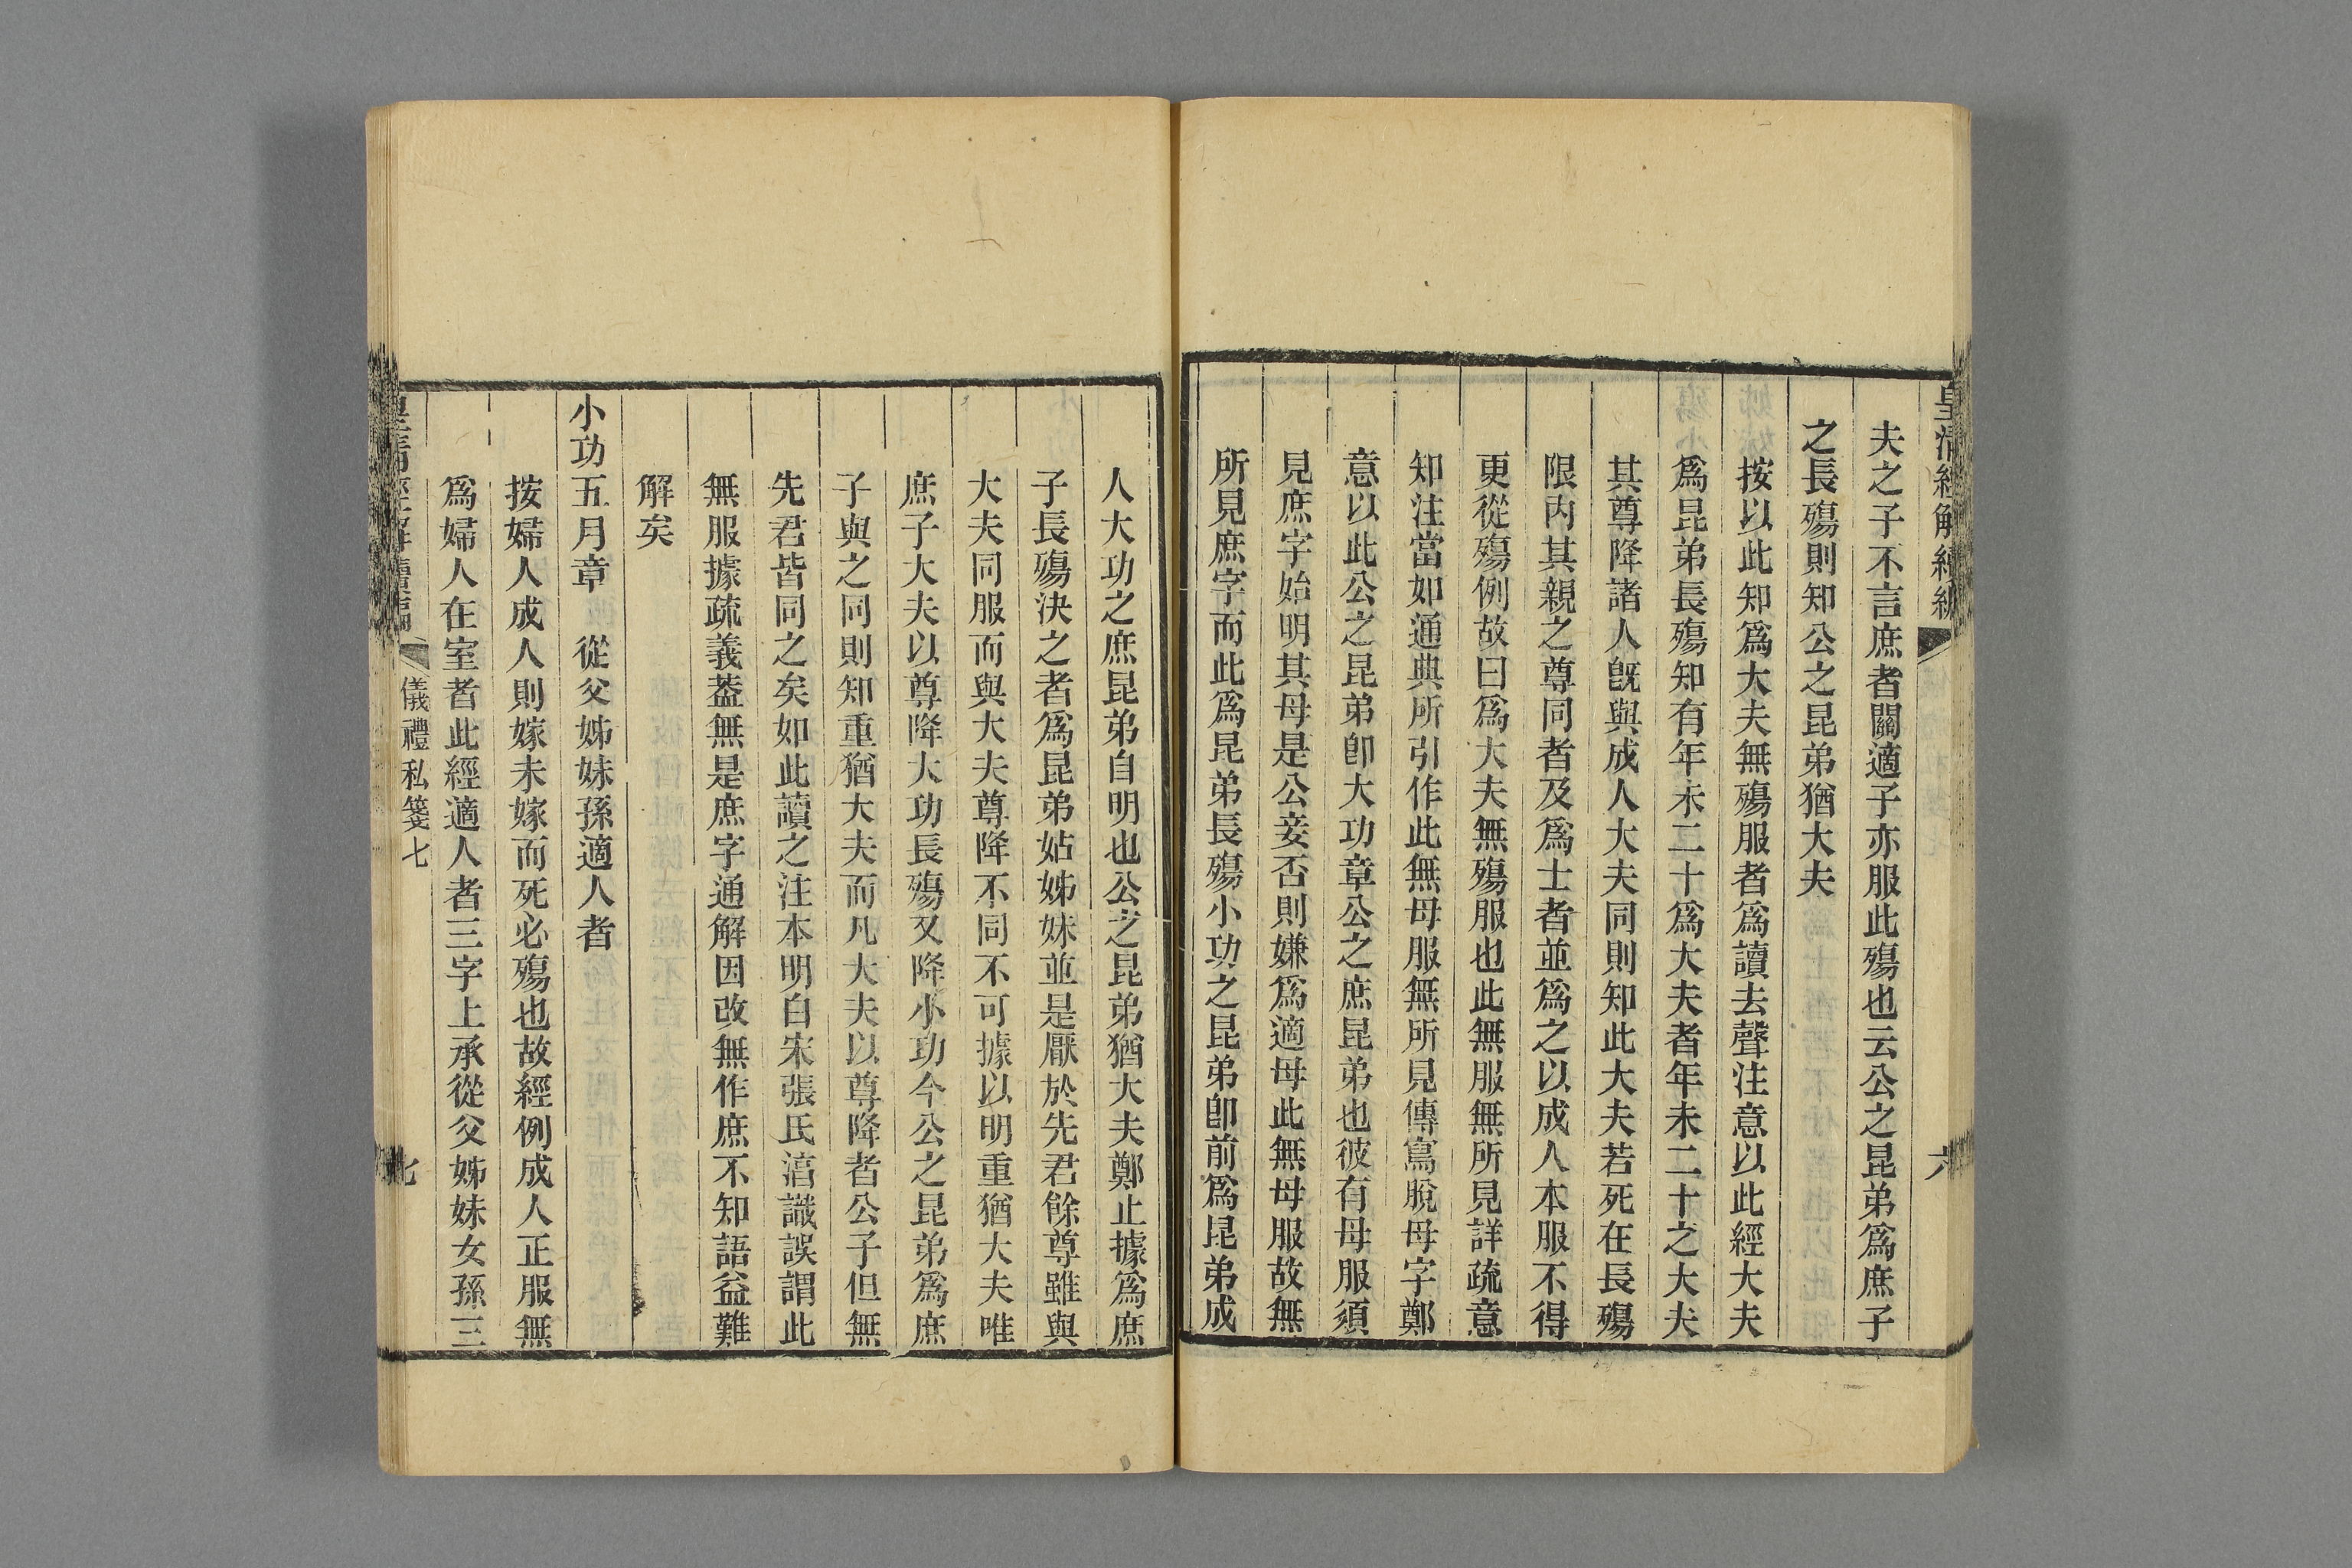 皇清經解續編
六
夫之子不言庶者關適子亦服此殤也云公之昆弟爲庶子
之長殤則知公之昆弟猶大夫
按以此知爲大夫無殤服者爲讀去聲注意以此經大夫
爲昆弟長殤知有年未二十爲大夫者年未二十之大夫
其尊降諸人旣與成人大夫同則知此大夫若死在長殤
限內其親之尊同者及爲士者並爲之以成人本服不得
更從殤例故曰爲大夫無殤服也此無服無所見詳疏意
知注當如通典所引作此無母服無所見傳寫脫母字鄭
意以此公之昆弟卽大功章公之庶昆弟也彼有母服須
見庶字始明其母是公妾否則嫌爲適母此無母服故無
所見庶字而此爲昆弟長殤小功之昆弟卽前爲昆弟成
人大功之庶昆弟自明也公之昆弟猶大夫鄭止據爲庶
子長殤決之者爲昆弟姑姊妹並是厭於先君餘尊雖與
大夫同服而與大夫尊降不同不可據以明重猶大夫唯
庶子大夫以尊降大功長殤又降小功今公之昆弟爲庶
子與之同則知重猶大夫而凡大夫以尊降者公子但無
先君皆同之矣如此讀之注本明白宋張氏淳識誤謂此
無服據疏義葢無是庶字通解因改無作庶不知語益難
解矣
小功五月章　從父姊妹孫適人者
按婦人成人則嫁未嫁而死必殤也故經例成人正服無
爲婦人在室者此經適人者三字上承從父姊妹女孫三
皇清經解續編
儀禮私箋七
七